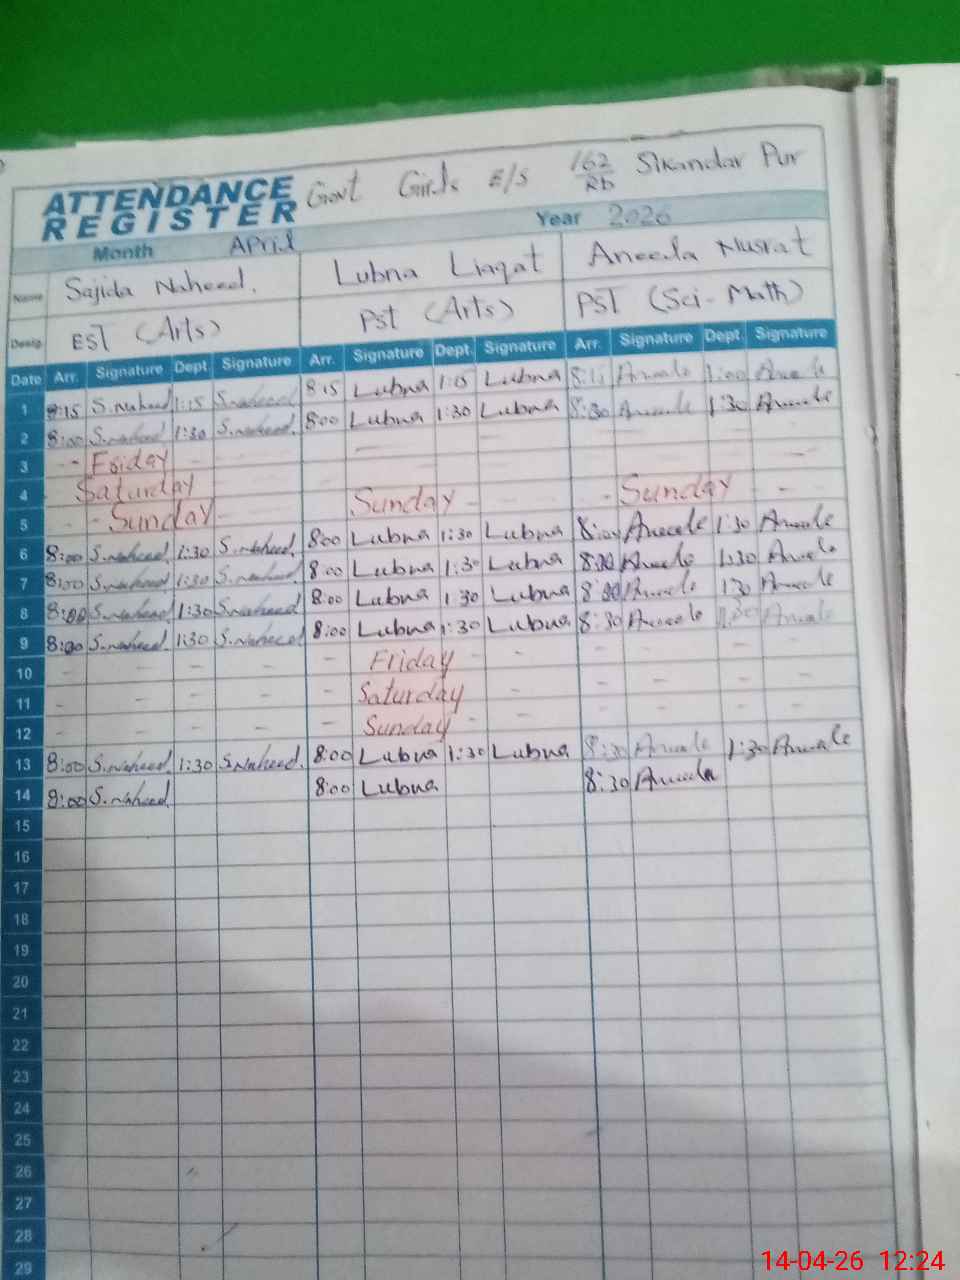 ATTENDANCE REGISTER Govt Girls E/S 162/Rb Sikandar Pur
Month April Year 2026
Name Sajida Naheed. Lubna Liaqat Aneela Nusrat
Desig. EST (Arts) PST (Arts) PST (Sci-Math)
Date Arr. Signature Dept. Signature Arr. Signature Dept. Signature Arr. Signature Dept. Signature
1 8:15 S.Naheed 1:15 S.Naheed 8:15 Lubna 1:15 Lubna 8:15 Aneela 1:00 Aneela
2 8:00 S.Naheed 1:30 S.Naheed. 8:00 Lubna 1:30 Lubna 8:30 Aneela 1:30 Aneela
3 - - Friday - - - - - - - - -
4 Saturday - - Sunday - - Sunday -
5 - - Sunday -
6 8:00 S.Naheed. 1:30 S.Naheed. 8:00 Lubna 1:30 Lubna 8:00 Aneela 1:30 Aneela
7 8:00 S.Naheed 1:30 S.Naheed. 8:00 Lubna 1:30 Lubna 8:00 Aneela 1:30 Aneela
8 8:00 S.Naheed. 1:30 S.Naheed 8:00 Lubna 1:30 Lubna 8:00 Aneela 1:30 Aneela
9 8:00 S.Naheed. 1:30 S.Naheed 8:00 Lubna 1:30 Lubna 8:30 Aneela 1:30 Aneela
10 - - - - - Friday - - - - - -
11 - - - - - Saturday - - - - -
12 - - - - - Sunday - - - - - -
13 8:00 S.Naheed. 1:30 S.Naheed. 8:00 Lubna 1:30 Lubna 8:30 Aneela 1:30 Aneela
14 8:00 S.Naheed. 8:00 Lubna 8:30 Aneela
15
16
17
18
19
20
21
22
23
24
25
26
27
28
29
14-04-26 12:24